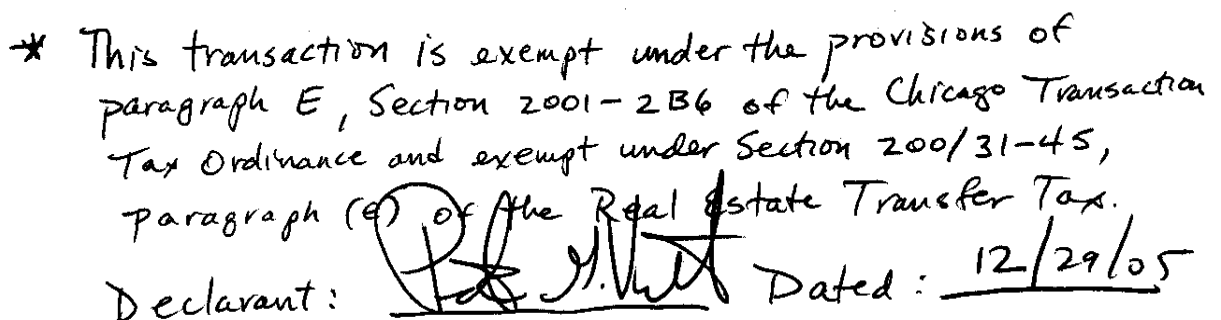 * This transaction is exempt under the provisions of
paragraph E, Section 2001-2B6 of the Chicago Transaction
Tax Ordinance and exempt under Section 200/31-45,
paragraph (e) of the Real Estate Transfer Tax.
Declarant: Dated: 12/29/05